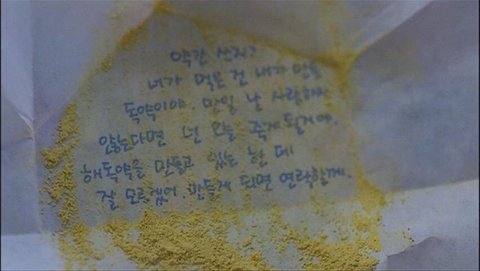 약간 쓰지?
너가 먹은 건 내가 만든
독약이야. 만일 날 사랑하지
않는다면 넌 오늘 죽게 될거야.
해독약을 만들고 있는 한 데
잘 모르겠어. 만들게 되면 연락할게.